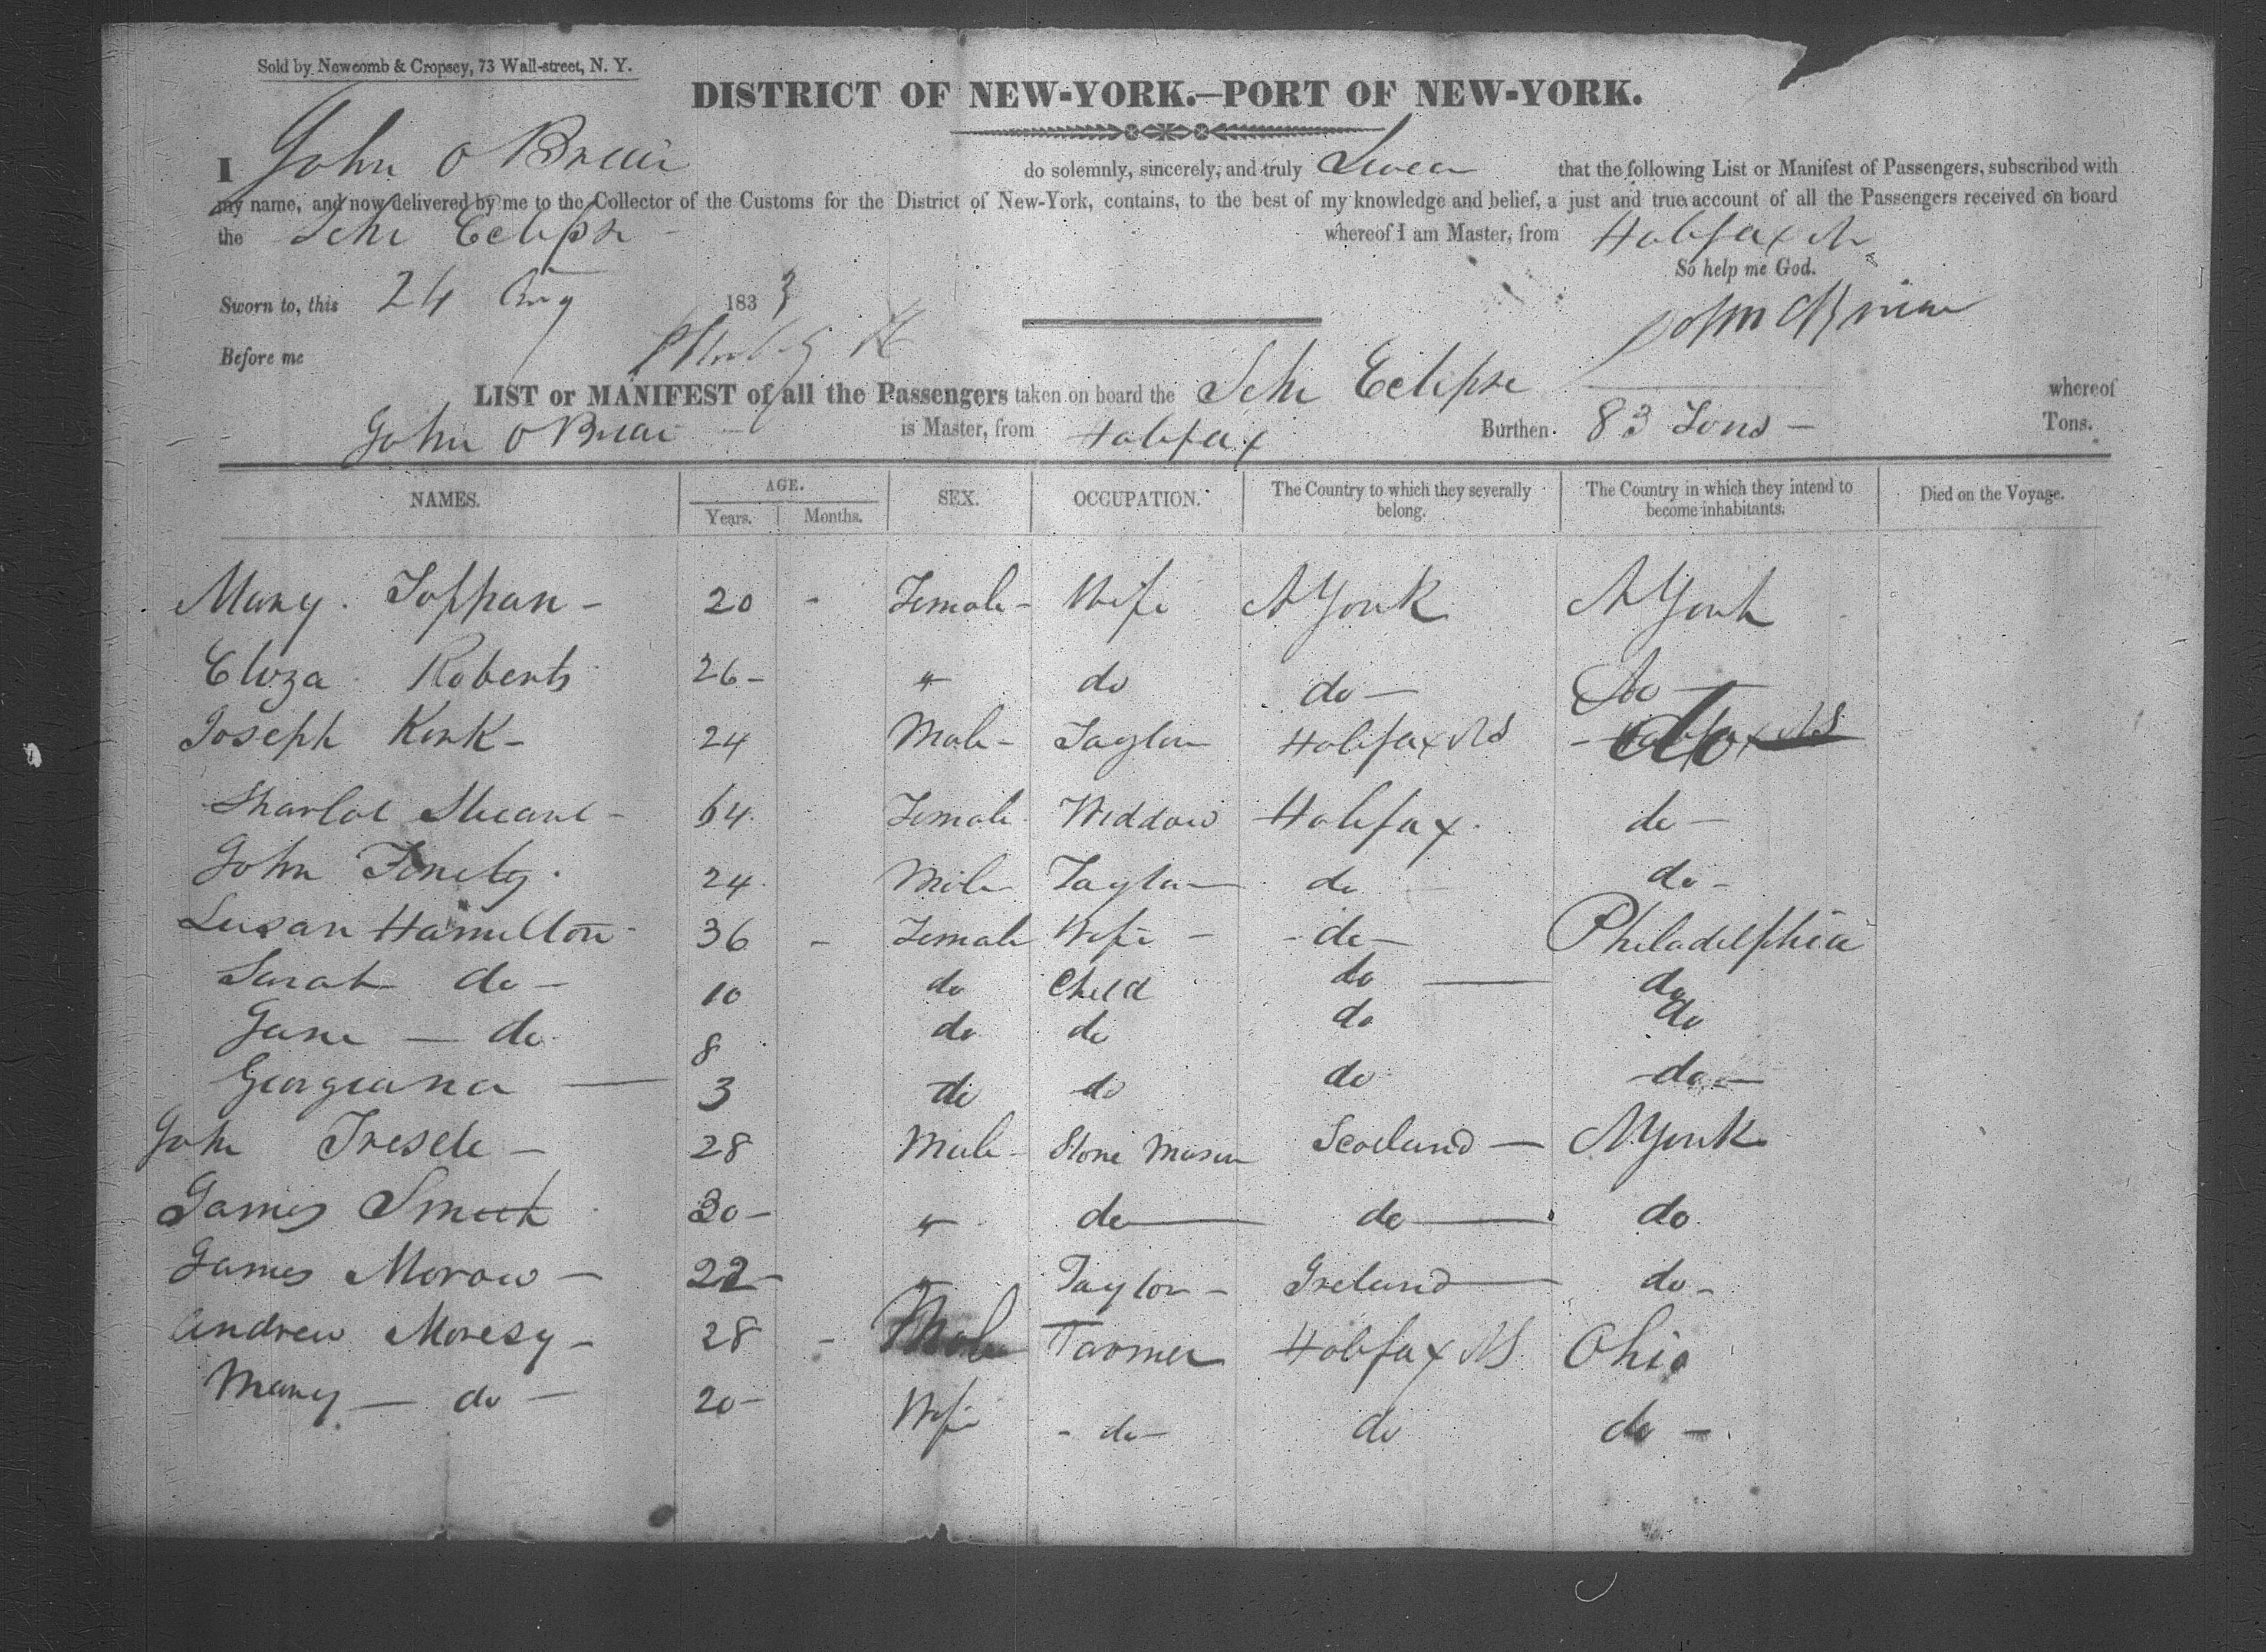 Sold by Newcomb & Cropsey, 73 Wall-street, N. Y.
DISTRICT OF NEW-YORK.—PORT OF NEW-YORK.
I John O Briein do solemnly, sincerely, and truly Swear that the following List or Manifest of Passengers, subscribed with
my name, and now delivered by me to the Collector of the Customs for the District of New-York, contains, to the best of my knowledge and belief, a just and true account of all the Passengers received on board
the Schr Eclipse whereof I am Master, from Halifax N
So help me God.
Sworn to, this 24 Aug 1833
John OBrien
Before me
LIST or MANIFEST of all the Passengers taken on board the Schr Eclipse whereof
John O Brien is Master, from Halifax Burthen 83 Tons — Tons.
NAMES. AGE. Years. Months. SEX. OCCUPATION. The Country to which they severally belong. The Country in which they intend to become inhabitants. Died on the Voyage.
Mary Toppan - 20 - Female - Wife N York N York
Eliza Roberts 26 - " do do — Do —
Joseph Kirk - 24 Male - Taylor Halifax NS - do
Sharlot - 64 Female Widdow Halifax. do —
John 24 Male Taylor do do -
Susan Hamilton - 36 - Female Wife - - do - Philadelphia
Sarah do - 10 do Child do — do
Jane — do 8 do do do do
Georgeana — 3 do do do - do —
John - 28 Male - Stone Mason Scotland — N York
James Smith 30 - " do — do — do
James Morow — 22 - " Taylor - Ireland — do -
Andrew Moresy - 28 - Male Farmer Halifax NS Ohio
Mary — do — 20 - Wife - do - do do -